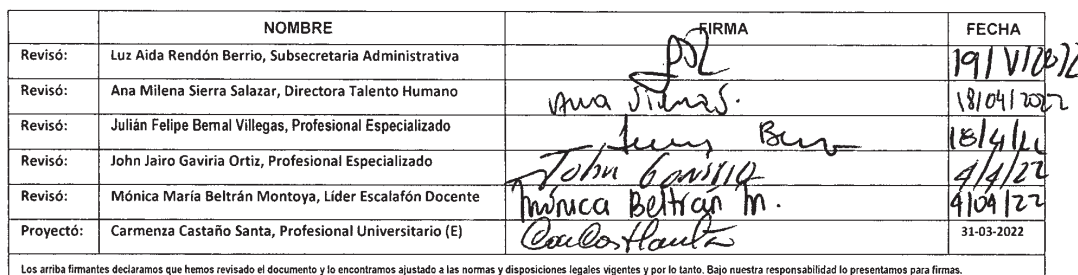 NOMBRE FIRMA FECHA
Revisó: Luz Aida Rendón Berrio, Subsecretaria Administrativa
Revisó: Ana Milena Sierra Salazar, Directora Talento Humano Ana Sierra S. 18/04/2022
Revisó: Julián Felipe Bernal Villegas, Profesional Especializado 18/4/22
Revisó: John Jairo Gaviria Ortiz, Profesional Especializado John Gaviria 4/4/22
Revisó: Mónica María Beltrán Montoya, Líder Escalafón Docente Mónica Beltrán M. 4/04/22
Proyectó: Carmenza Castaño Santa, Profesional Universitario (E) 31-03-2022
Los arriba firmantes declaramos que hemos revisado el documento y lo encontramos ajustado a las normas y disposiciones legales vigentes y por lo tanto. Bajo nuestra responsabilidad lo presentamos para firmas.